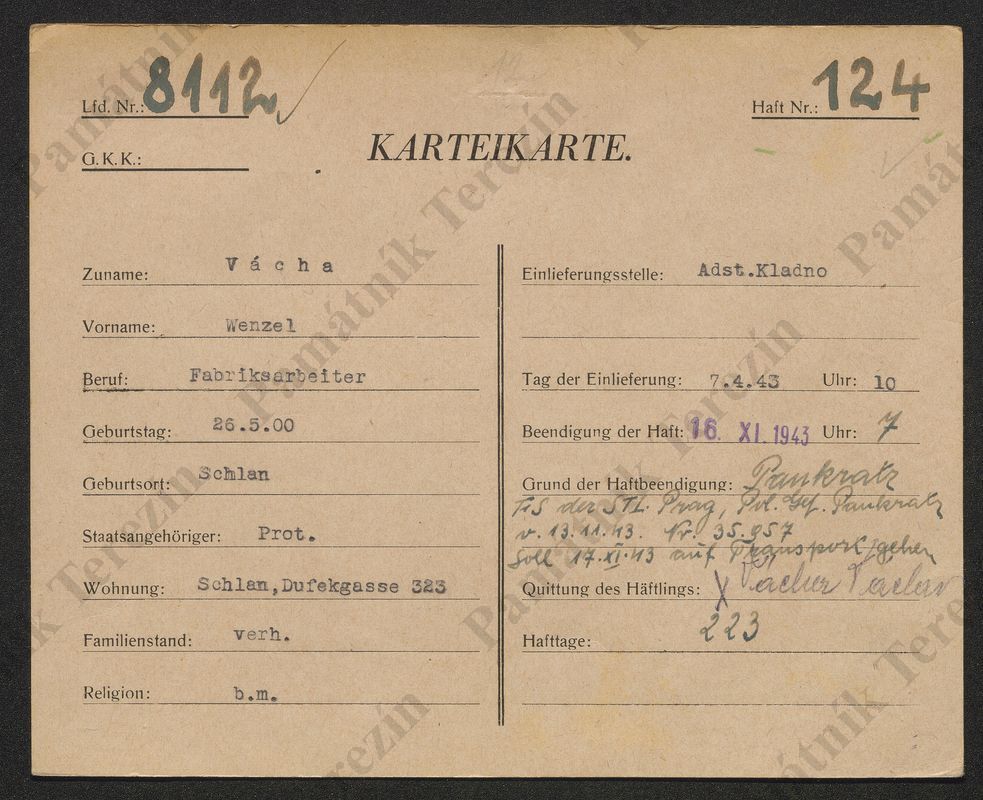 Lfd. Nr.: 8112
Haft Nr.: 124
G. K. K.:
KARTEIKARTE.
Zuname: Vácha
Vorname: Wenzel
Beruf: Fabriksarbeiter
Geburtstag: 26.5.00
Geburtsort: Schlan
Staatsangehöriger: Prot.
Wohnung: Schlan, Dufekgasse 323
Familienstand: verh.
Religion: b.m.
Einlieferungsstelle: Adst.Kladno
Tag der Einlieferung: 7.4.43 Uhr: 10
Beendigung der Haft: 16. XI. 1943 Uhr: 7
Grund der Haftbeendigung: Pankratz
FS der STL. Prag, Pol. Gef. Pankratz
v. 13.11.43. Nr. 35.957
Soll 17.XI.43 auf Transport gehen
Quittung des Häftlings: X Václav
Hafttage: 223
Památník Terezín